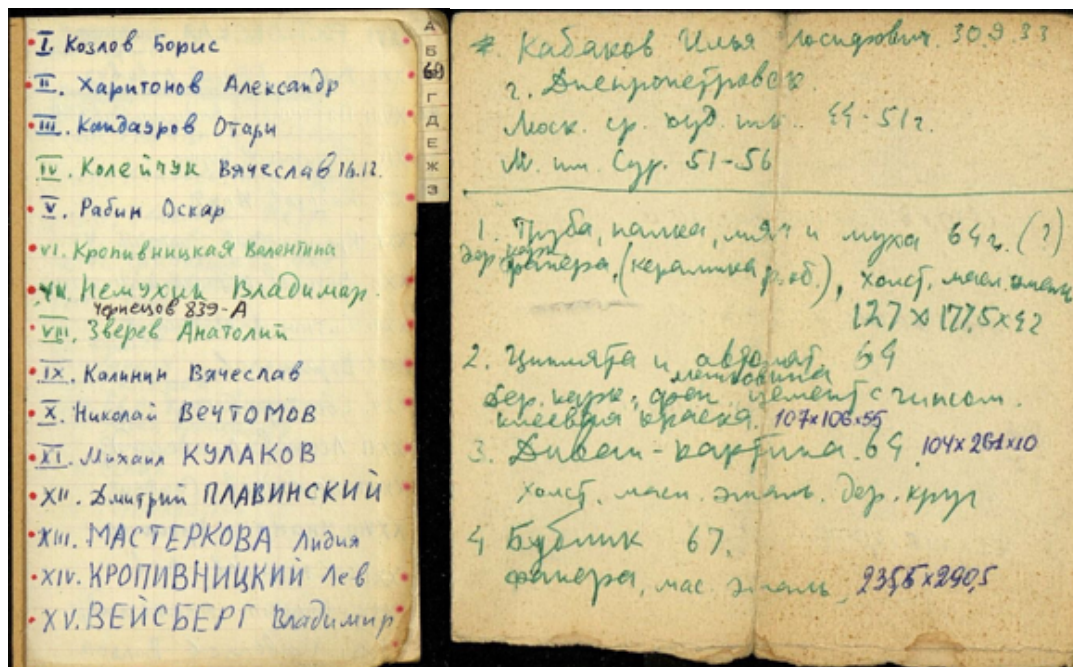 I. Козлов Борис
II. Харитонов Александр
III. Кандауров Отари
IV. Колейчук Вячеслав 16.12.
V. Рабин Оскар
VI. Кропивницкая Валентина
VII. Немухин Владимир
Чернецов 839-А
VIII. Зверев Анатолий
IX. Калинин Вячеслав
X. Николай ВЕЧТОМОВ
XI. Михаил КУЛАКОВ
XII. Дмитрий ПЛАВИНСКИЙ
XIII. МАСТЕРКОВА Лидия
XIV. КРОПИВНИЦКИЙ Лев
XV. ВЕЙСБЕРГ Владимир
А
Б
Г
Д
Е
Ж
З
Кабаков Илья Иосифович. 30.9.33
г. Днепропетровск
Моск. ср. худ. шк. 44-51г.
М. им. Сур. 51-56
1. Труба, палка, мяч и муха 64г. (?)
дер. карк.
фанера, (керамика р.об.), холст. масл. эмаль
127 x 177,5 x 42
2. Цыплята и автомат 64
мешковина
дер. карк., фан. цемент с гипсом.
клеевая краска. 107x106x55
3. Диван-картина. 64. 104x201x10
холст. масл. эмаль. дер. круг
4 Бублик 67.
фанера, мас. эмаль,